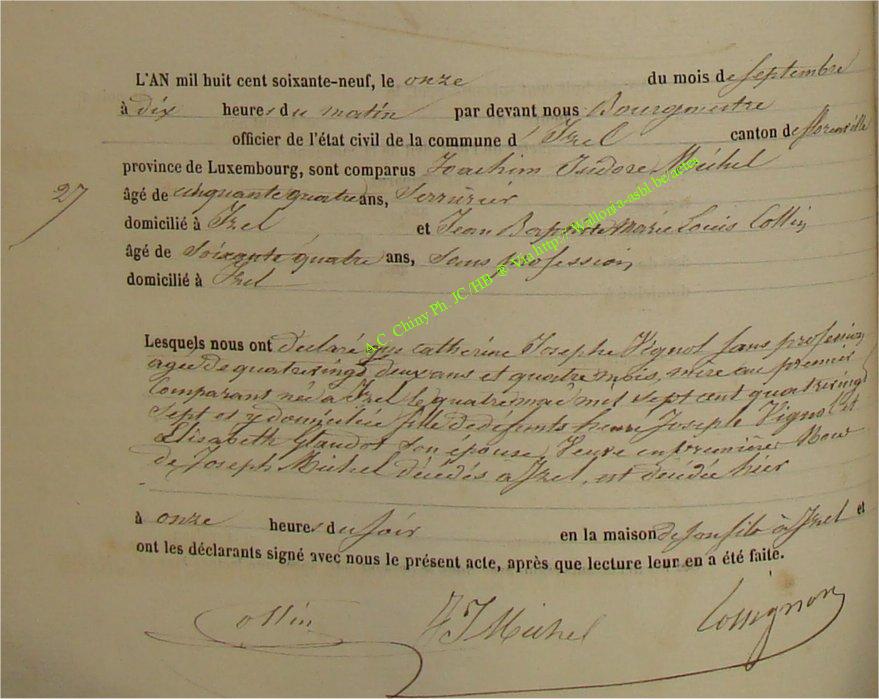 L'AN mil huit cent soixante-neuf, le onze du mois de Septembre
à dix heures du matin par devant nous Bourgmestre
officier de l'état civil de la commune d' Izel canton de florenville
province de Luxembourg, sont comparus Joachim Isidore Michel
27
âgé de cinquante quatre ans, Serrurier
domicilié à Izel et Jean Baptiste Marie Louis Collin
âgé de Soixante quatre ans, Sans profession
domicilié à Izel
A.C. Chiny Ph. JC /HB ® Via http://Wallonia-asbl.be/actes
Lesquels nous ont déclaré que Catherine Josephe Vignol Sans profession
agée de quatrevingt deux ans et quatre mois, mere au premier
Comparant née à Izel le quatre mai mil sept cent quatrevingt
Sept et y domiciliée fille de défunts Joseph Vignol et
Elisabeth Glaudot son épouse, Veuve en premières
de Joseph Michel décédés à Izel, est décédée hier
à onze heures du soir en la maison de son fils à Izel et
ont les déclarants signé avec nous le présent acte, après que lecture leur en a été faite.
Collin JJ Michel Cossignon